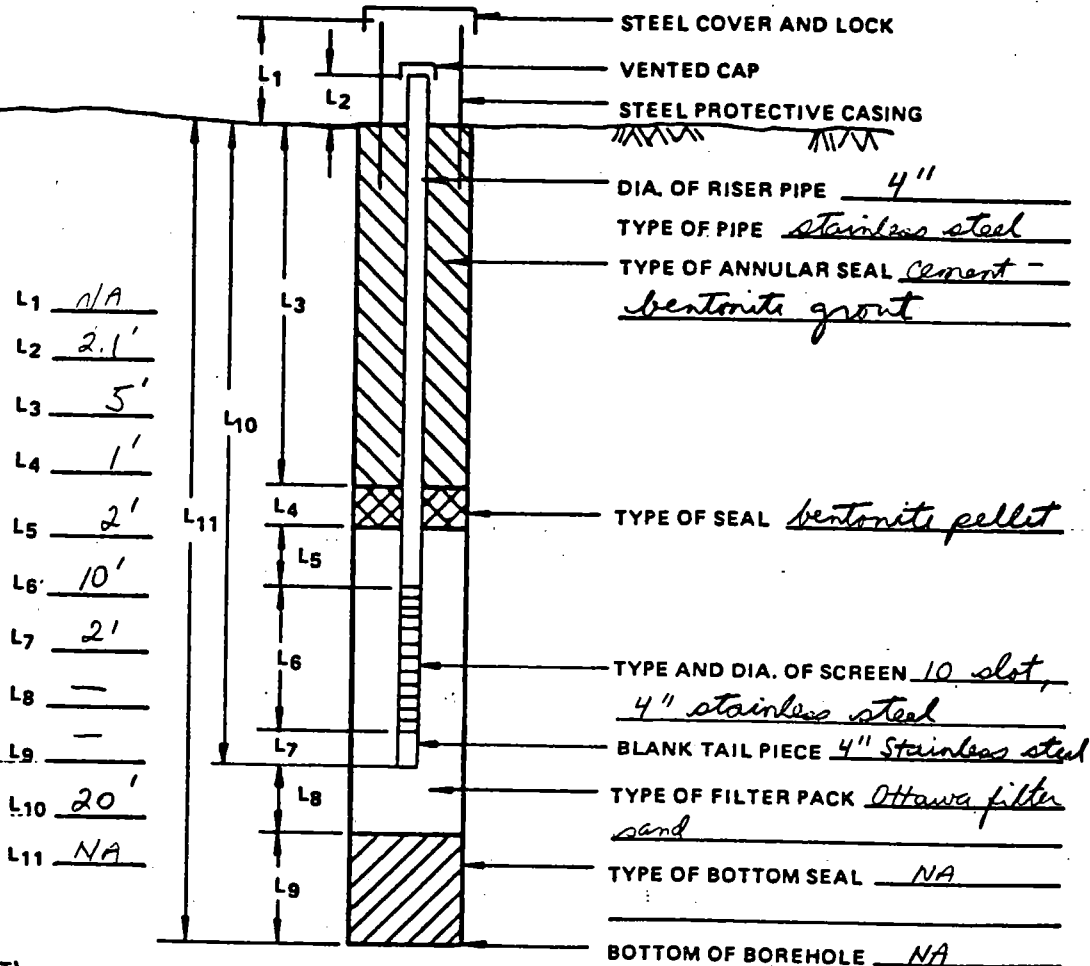 STEEL COVER AND LOCK
VENTED CAP
STEEL PROTECTIVE CASING
DIA. OF RISER PIPE 4"
TYPE OF PIPE stainless steel
TYPE OF ANNULAR SEAL cement -
bentonite grout
TYPE OF SEAL bentonite pellet
TYPE AND DIA. OF SCREEN 10 slot,
4" stainless steel
BLANK TAIL PIECE 4" Stainless steel
TYPE OF FILTER PACK Ottawa filter
sand
TYPE OF BOTTOM SEAL NA
BOTTOM OF BOREHOLE NA
L1 n/A
L2 2.1'
L3 5'
L4 1'
L5 2'
L6 10'
L7 2'
L8 —
L9 —
L10 20'
L11 NA
L1
L2
L3
L10
L4
L11
L5
L6
L7
L8
L9